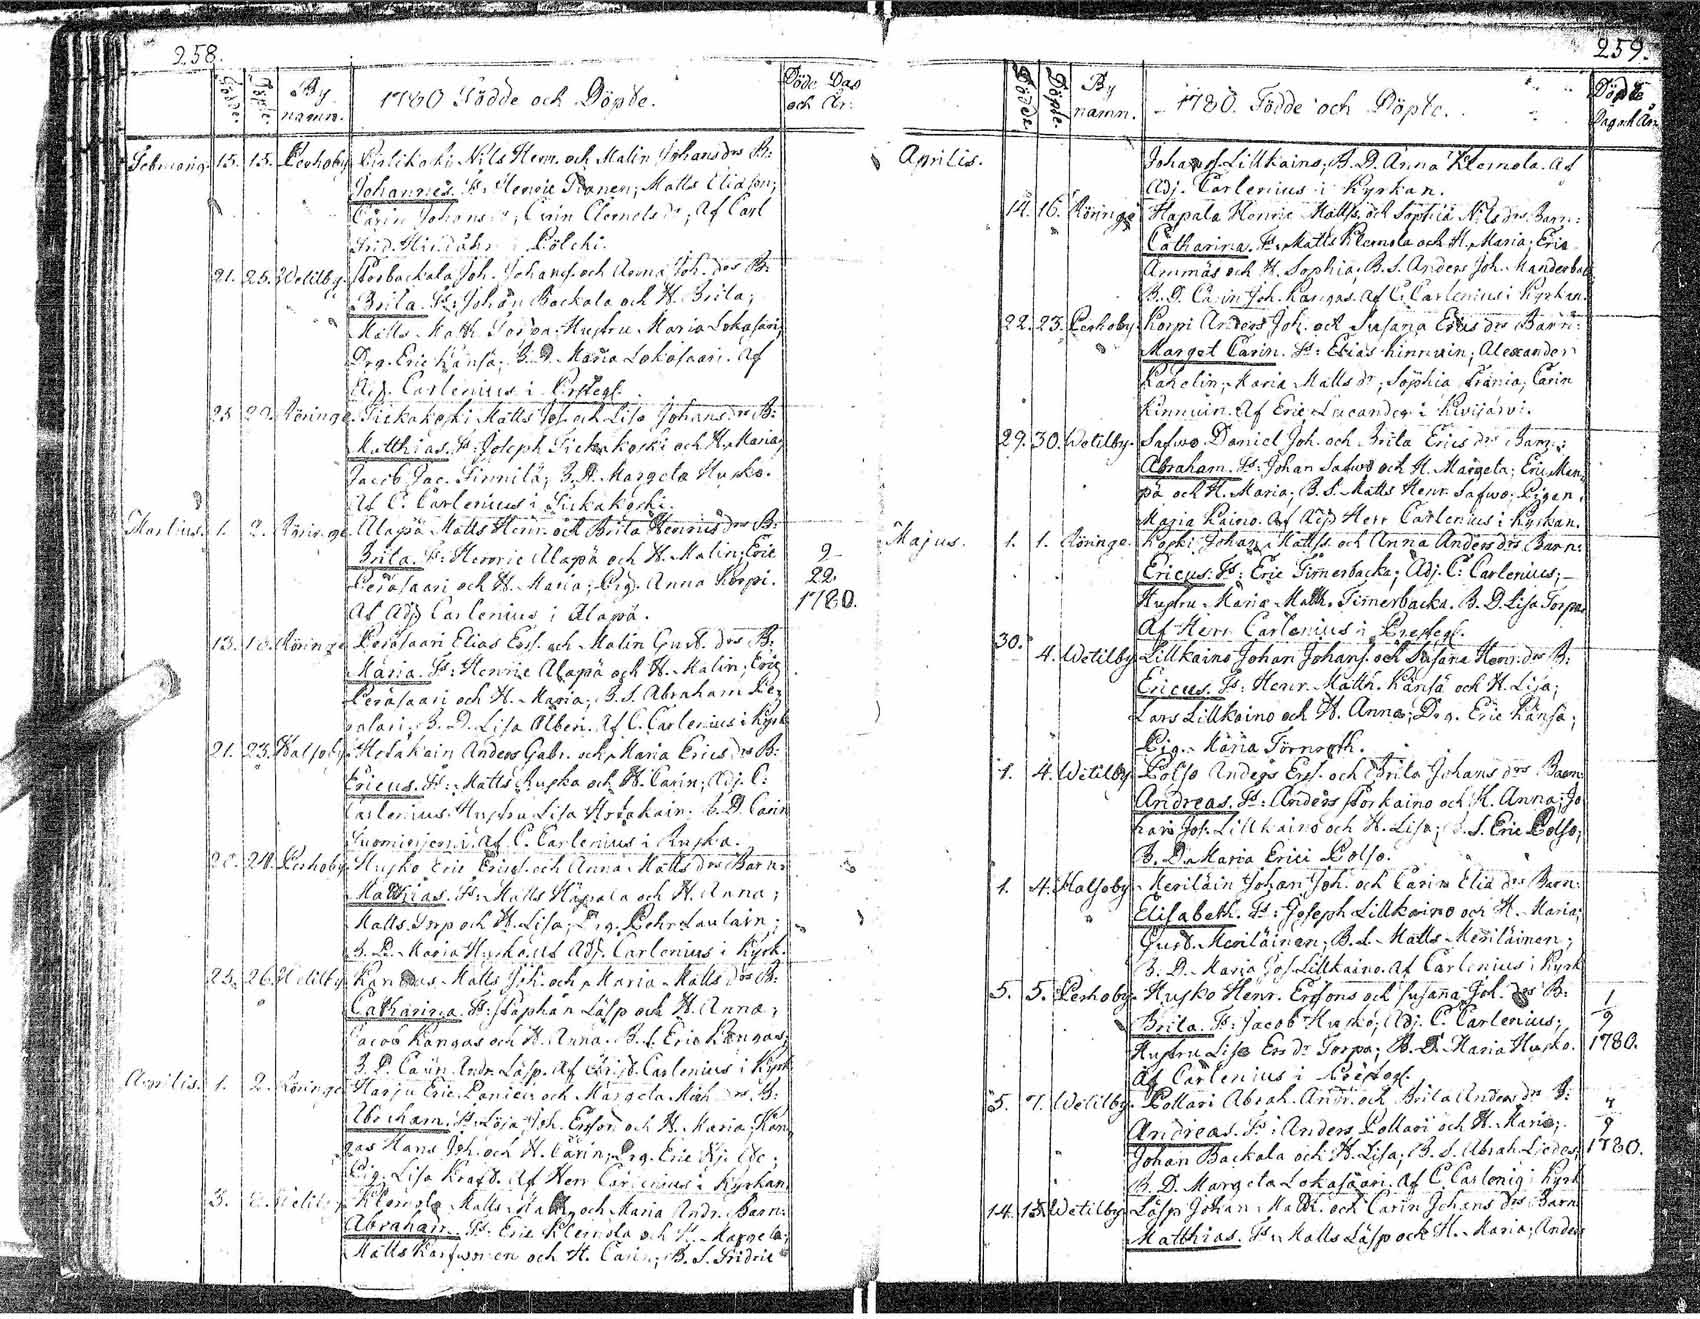 258.
Födde. Döpte. By namn. 1780 Födde och Döpte. Döde Dag och År:
Februarius 15. 15. Perhoby Nils Henr. och Malin Johans drs B:
Johannes. Fs: Henric Matts Eliasson;
Carin Johans dr; Carin Clemets dr; Af Carl
Frid. i Pölcki.
21. 25. Wetilby. Torbackala Joh. Johans. och Anna Joh. drs B:
Brita. Fs: Johan Backala och H. Brita;
Matts Math. Torpa. Hustru Maria Lokasari;
Drg. Eric Känsä; B. D. Maria Lokasaari. Af
Adj. Carlenius i Presteg.
25. Röringe. Tickakoski Matts Jos. och Lisa Johans drs B:
Matthias. Fs: Joseph Tickakoski och H. Maria;
Jacob Jac. Finnilä; B. D. Margeta Husko.
Af C. Carlenius i Tickakoski.
Martius. 1. 2. Röringe Alapä Matts Henr. och Brita Henrics drs B:
Brita. Fs: Henric Alapä och H. Malin; Eric 9
Peräsaari och H. Maria; Pig. Anna Korpi. 22.
Af Adj Carlenius i Alapä. 1780.
13. Röringe Peräsaari Elias Ers. och Malin Gust. drs B:
Maria. Fs: Henric Alapä och H. Malin; Eric
Peräsaari och H. Maria; B. S. Abraham
B. D. Lisa Af C. Carlenius i Kyrk
21. 23. Halsoby Hotakain Anders Gabr. och Maria Erics drs B:
Ericus. Fs: Matts Ruska och H. Carin; Adj. C:
Carlenius. Hustru Lisa Hotakain; B. D. Carin
Af C. Carlenius i Ruska.
24. Perhoby Husko Eric Erics. och Anna Matts drs Barn:
Matthias. Fs: Matts Hapala och H. Anna;
Matts Torp och H. Lisa; Drg. Pehr Laulain;
B. D. Maria Husko. Af Adj. Carlenius i Kyrk.
25. 26. Wetilby Kangas Matts Joh. och Maria Matts drs B:
Catharina. Fs: Staphan Läsp och H. Anna;
Jacob Kangas och H. Anna. B. S. Eric Kangas;
B. D. Carin Andr. Läsp. Af Carlenius i Kyrk
Aprilis. 1. 2. Röringe Harju Eric Danielss och Margeta Mich. drs B:
Abraham. Fs: Joh. Ersson och H. Maria; Kan
gas Hans Joh. och H. Carin; Drg. Eric
Pig. Lisa Kraft. Af Herr Carlenius i Kyrkan
3. Wetilby Klemola Matts Math. och Maria Andr. Barn:
Abraham. Fs: Eric Klemola och H. Margeta;
Matts Karfwonen och H. Carin; B. S. Fridric
259.
Födde. Döpte. By namn. 1780. Födde och Döpte. Döpte Dag och År
Aprilis. Johans. Lillkaino; B. D. Anna Klemola. Af
Adj. Carlenius i Kyrkan.
14. 16. Röringe Hapala Henric Matts. och Sophia Nils drs Barn:
Catharina. Fs: Matts Klemola och H. Maria; Eric
Ammäs och H. Sophia. B. S. Anders Joh. Manderbac
B. D. Carin Joh. Kangas. Af C. Carlenius i Kyrkan.
22. 23. Perhoby. Korpi Anders Joh. och Susana Erics drs Barn:
Marget Carin. Fs: Elias Kinnuin; Alexander
Kahelin; Maria Matts dr; Sophia Carin
Kinnuin. Af Eric Lucander i Kivijärvi.
29. 30. Wetilby. Safwo Daniel Joh. och Brita Erics drs Barn:
Abraham. Fs: Johan Safwo och H. Margeta; Eric Man
pä och H. Maria; B. S. Matts Henr. Safwo; Pigan
Maria Kaino. Af Adj Herr Carlenius i Kyrkan.
Majus. 1. 1. Röringe. Koski Johan Matts. och Anna Anders drs Barn:
Ericus. Fs: Eric Timerbacka; Adj. C: Carlenius;
Hustru Maria Math. Timerbacka. B. D. Lisa Torpa
Af Herr Carlenius i Prestegl.
30. 4. Wetilby Lillkaino Johan Johans. och Susana Henr. drs B:
Ericus. Fs: Henr. Matth. Känsä och H. Lisa;
Lars Lillkaino och H. Anna; Drg. Eric Känsä;
Pig. Maria Törnroth.
1. 4. Wetilby Polso Anders Ers. och Brita Johans drs Barn:
Andreas. Fs: Anders Storkaino och H. Anna; Jo
han Jos. Lillkaino och H. Lisa; B. S. Eric Polso;
B. D. Maria Erici Polso.
1. 4. Halsoby Meriläin Johan Joh. och Carin Elia drs Barn:
Elisabeth. Fs: Joseph Lillkaino och H. Maria;
Gust. Meriläinen; B. S. Matts Meriläinen;
B. D. Maria Jos. Lillkaino. Af Carlenius i Kyrk
5. 5. Perhoby. Husko Henr. Erssons och Susana Joh. drs B: 1
Brita. Fs: Jacob Husko; Adj. C. Carlenius; 9
Hustru Lisa Ers dr Torpa; B. D. Maria Husko. 1780.
Af Carlenius i Prestegl.
5. 7. Wetilby. Pollari Abrah. Andr. och Brita Anders drs B: 4
Andreas. Fs: Anders Pollari och H. Maria; 9
Johan Backala och H. Lisa; B. S. Abrah. Liedes; 1780.
B. D. Margeta Lokasaari. Af C. Carlenig i Kyrk
14. 15. Wetilby Läsp Johan Math. och Carin Johans drs Barn
Matthias. Fs: Matts Läsp och H. Maria; Anders